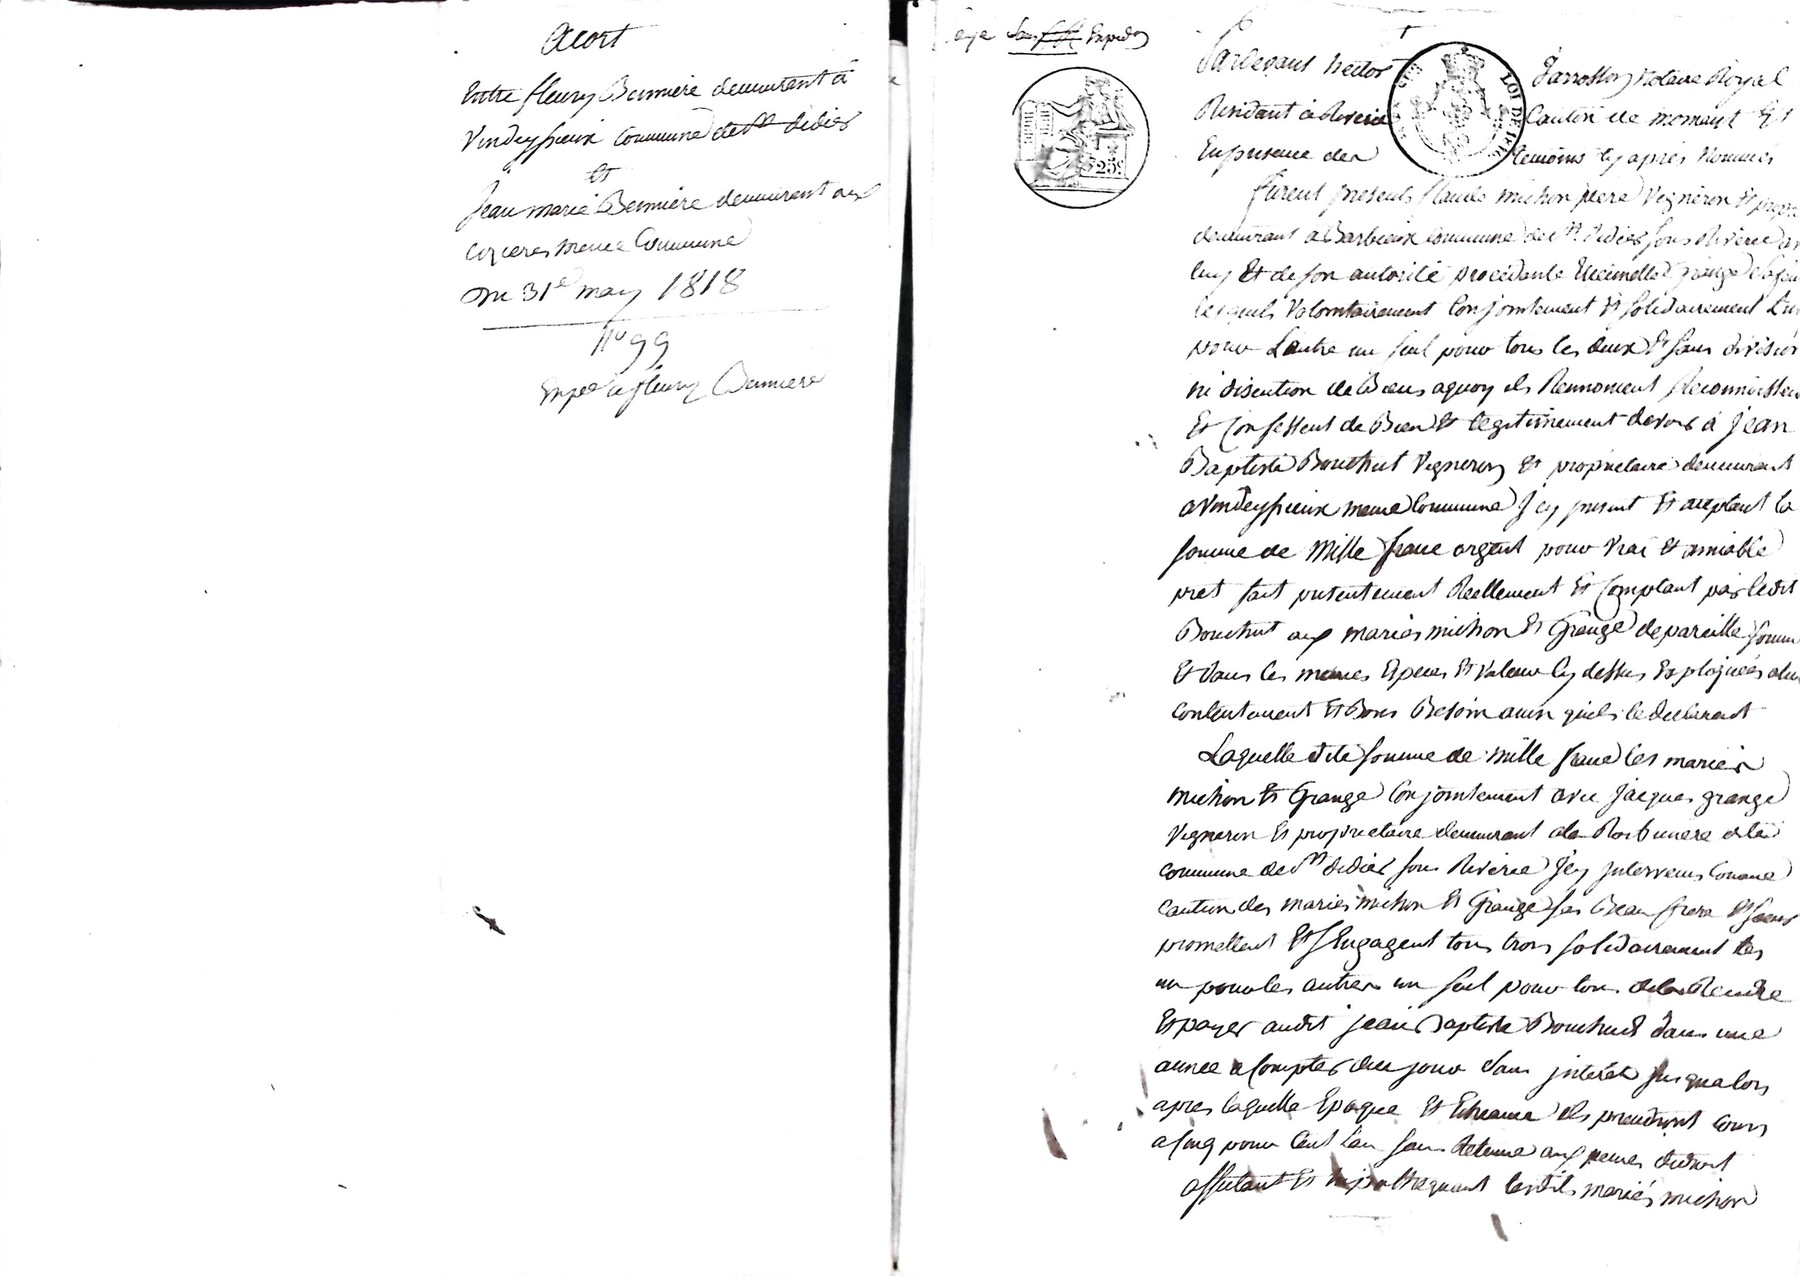 Acort
Entre fleury Bernniere demeurant à
Vindeyssieux Commune de st didier
Et
Jean marie Bernniere demeurent aux
même Commune
Du 31e may 1818
no 99
Expé a fleury Bernniere
Expedon
25c
LOI DE 1816
Pardevant hector Jarrosson Notaire Royal
Residant à Riverie Canton de mornant Et
En presence des temoins Cy après Nommés
furent presents Claude michon pere Vigneron Et propre
demeurant a Barbieux Commune de st didier sous Riverie
luy Et de son autorité procédante Grange
lesquels Volontairement Conjointement Et solidairement L'un
pour L'autre un seul pour tous les deux Et sans division
ni discution de Biens aquoy ils Rennoncent Reconnoissent
Et Confessent de Bien Et legitimement devoir à Jean
Baptiste Bouchut Vigneron Et propriétaire demeurant
a Vindeyssieux meme Commune Jcy present Et aceptant la
somme de Mille franc argent pour Vrai Et amiable
pret fait presentement Reellement Et Comptant par ledit
Bouchut aux mariés michon Et Grange de pareille somme
Et dans les memes Especes Et Valeur Cy dessus Expliquées
contentement Et Bons Besoin ainsi qu'ils le déclarent
Laquelle dite somme de Mille franc les mariés
michon Et Grange Conjointement avec Jacques grange
Vigneron Et propriétaire demeurant
commune de st didier sous Riverie Jcy Intervenu Comme
caution des mariés michon Et Grange ses Beau frere Et soeur
promettent Et s'Engagent tous trois solidairement les
un pour les autres un seul pour tous de la Rendre
Et payer audit Jean Baptiste Bouchut dans une
année a Compter du jour sans jnterêt jusqualors
apres laquelle Epoque Et Echeance ils prendront cours
a Cinq pour Cent L'an sans Retenue aux peines dudroit
affectant Et hipothequant lesdits mariés michon